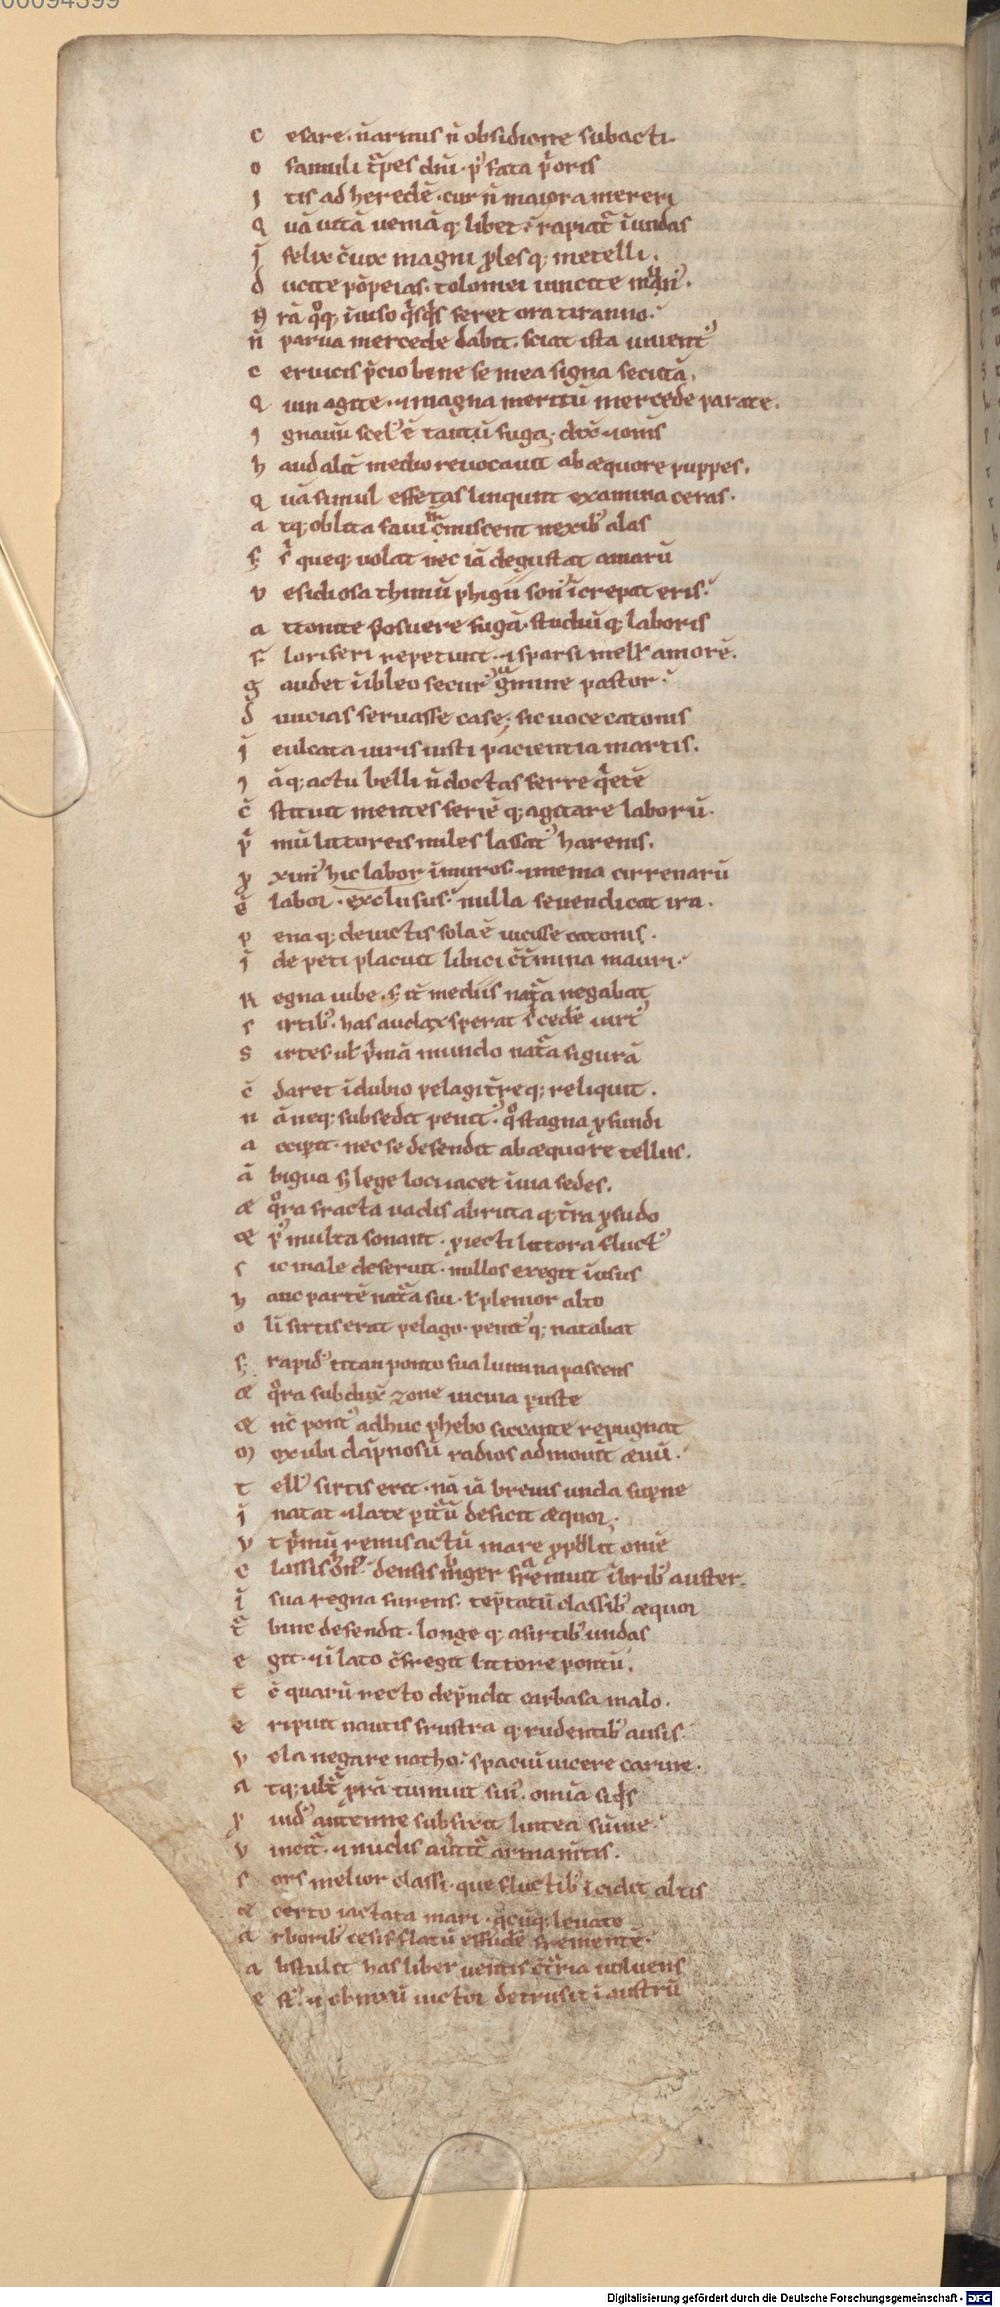 00094399
C esare. n̄ armis n̄ obsidione subacti.
o famuli t̄pes dn̄i. p᷒ fata p̄oris
J tis ad heredē. cur n̄ maiora mereri
Q uā uitā ueniāq; libet. rapiat̄ ī undas
J felix c̄iux magni ꝓlesq; metelli.
d ucite pōpeias. tolomei uincite mun᷒.
N rā q̊q; īuiso q̄sq̄s feret ora tiranno.
n̄ parua mercede dabit. sciat ista iuuent᷒
c eruicis p̄cio bene se mea signa secutā.
Q uin agite. ⁊ magna meritū mercede parate.
J gnauū scel᷒ ē tantū fuga. dix̄ ⁊ om̄s
h aud alit̄ medio reuocauit ab æquore puppes.
Q uā simul effetas linqunt examina ceras.
a tq; oblita faui n̄ miscent nexib᷒ alas
S; s᷒ queq; uolat nec iā degustat amarū
D esidiosa thimū phigii son᷒ īcrepat eris.
a ttonite posuere fugā. studiūq; laboris
F loriferi repetunt. ⁊ sparsi mell᷒ amorē.
g audet ībleo secur᷒ gmine pastor.
d iuicias seruasse case. sic uoce catonis
J culcata uiris iusti paciencia martis.
J āq; actu belli n̄ doctas ferre q̄etē
c̄ stituit mentes seriēq; agitare laborū.
p̄ mū littoreis miles lassat᷒ harenis.
p xim᷒ hic labor ī muros. ⁊ menia cirrenarū
ē labor. exclusus. nulla se uendicat ira.
p enaq; deuictis sola ē uicisse catonis.
J de peti placuit libici c̄t̄mina mauri.
R egna iube. s; it̄ mediis nat̄a negabat
s irtib᷒. has audax sperat s᷒ cedē uirt᷒
S irtes. ul̄ p̄mā mundo nat̄a figurā
c̄ daret ī dubio pelagi t̄req; reliquit.
n āneq; subsedit penit᷒. q̊ stagna ꝓfundi
a cciꝑet. nec se defendit ab æquore tellus.
ā bigua s; lege loci iacet īuia sedes.
æ q̊ra fracta uadis abruptaq; t̄ra ꝓfūdo
æ p᷒ multa sonant. ꝓiecti littora fluct᷒
s ic male deseruit. nullos exegit ī usus
h anc partē nat̄a sui. ł plenior alto
o lī sirtis erat pelago. penit᷒q; natabat
s; rapid᷒ titan ponto sua lumina pascens
æ q̊ra subdux̄ zone uicina ꝑuste
æ nc̄ pont᷒ adhuc phebo siccante repugnat
M ox ubi dāpnosū radios admouit̄ æuū.
t ell᷒ sirtis erit. nā iā breuis unda suꝑne
J natat. ⁊ late ꝑit̄ū deficit æquor.
V t p̄mū remis actū mare ꝓpulit om̄e
c lassis on᷒. densis niger fremuit ībrib᷒ auster.
ī sua regna furens. tēptatū classib᷒ æquor
t̄ bine defendit. longeq; a sirtib᷒ undas
e git. ⁊ īlato c̄fregit littore pontū.
t c̄ quarū recto dep̄ndit carbasa malo.
e ripuit nautis frustraq; rudentib᷒ ausis
v ela negare notho. spaciū uicere carine.
a tq; ult̄ prorā tumuit sin᷒. om̄ia siq̄s
p uid᷒ antenne subfixit lintea sūme.
v incit̄. ⁊ nudis auertit̄ armam̄tis.
s ors melior classi. que fluctib᷒ īcidit altis
æ certo iactata mari. q̄cūq; leuate
a rborib᷒ cesis flatū effudē frementē.
a bstulit has liber uentis c̄t̄ria uoluens
e st᷒. ⁊ obnixū uictor detrusit ī austrū
Digitalisierung gefördert durch die Deutsche Forschungsgemeinschaft - DFG